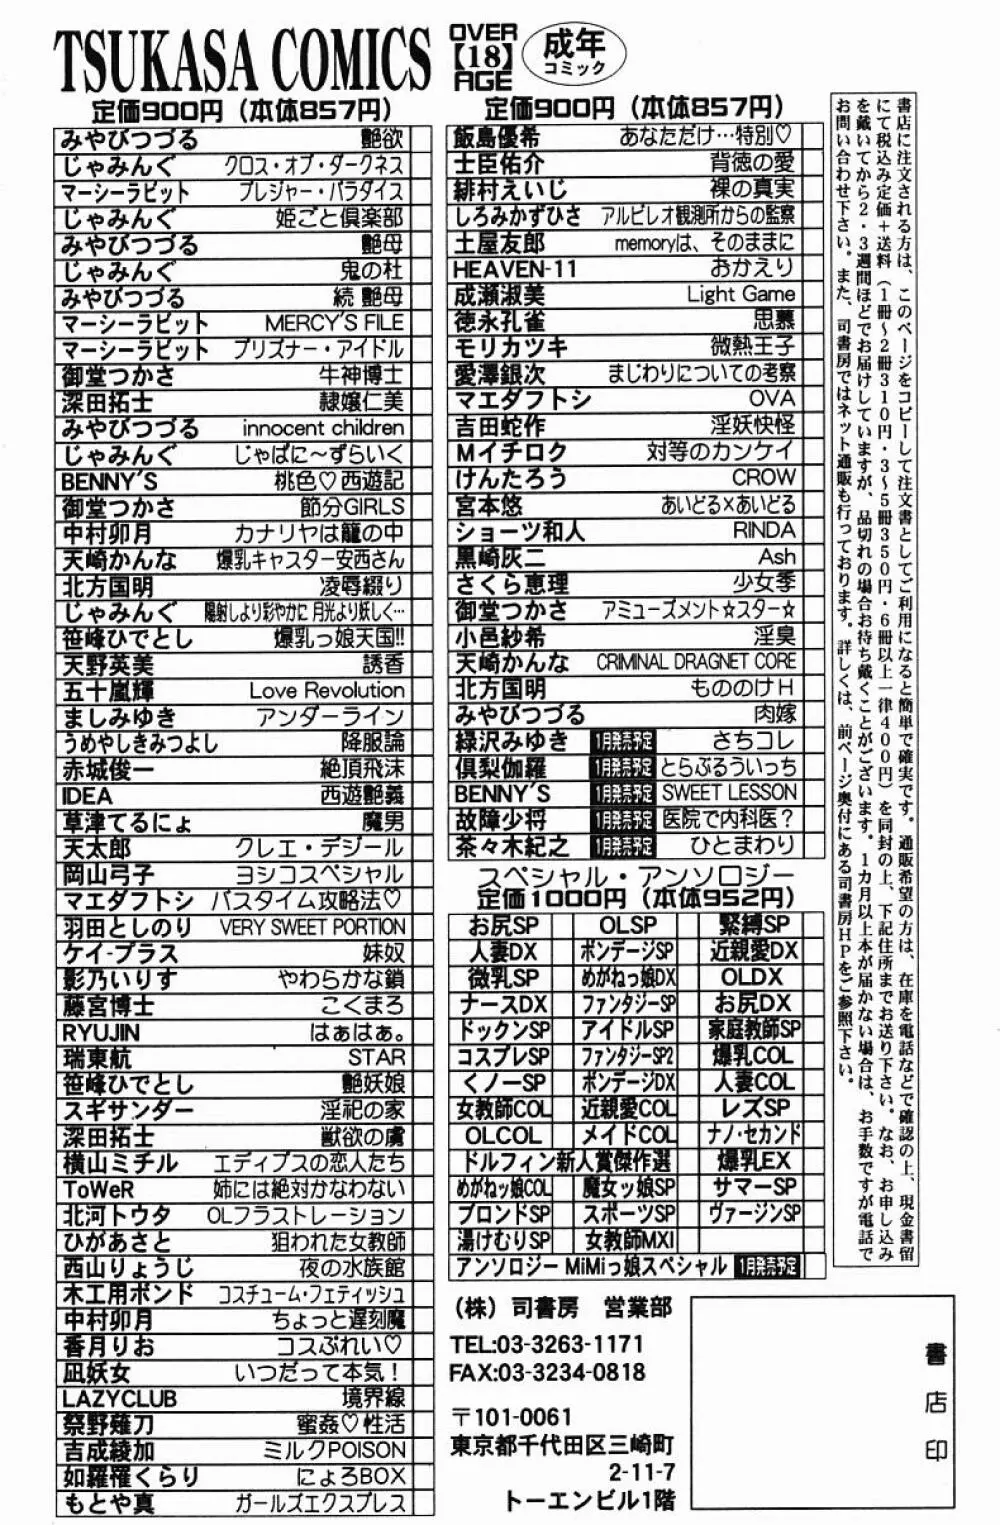 TSUKASA COMICS
OVER
【18】
AGE
成年
コミック
定価900円（本体857円）
みやびつづる 艶欲
じゃみんぐ クロス・オブ・ダークネス
マーシーラビット プレジャー・パラダイス
じゃみんぐ 姫ごと倶楽部
みやびつづる 艶母
じゃみんぐ 鬼の杜
みやびつづる 続 艶母
マーシーラビット MERCY'S FILE
マーシーラビット プリズナー・アイドル
御堂つかさ 牛神博士
深田拓士 隷嬢仁美
みやびつづる innocent children
じゃみんぐ じゃぱに～ずらいく
BENNY'S 桃色♡西遊記
御堂つかさ 節分GIRLS
中村卯月 カナリヤは籠の中
天崎かんな 爆乳キャスター安西さん
北方国明 凌辱綴り
じゃみんぐ 陽射しより彩やかに 月光より妖しく…
笹峰ひでとし 爆乳っ娘天国!!
天野英美 誘香
五十嵐輝 Love Revolution
ましみゆき アンダーライン
うめやしきみつよし 降服論
赤城俊一 絶頂飛沫
IDEA 西遊艶義
草津てるにょ 魔男
天太郎 クレエ・デジール
岡山弓子 ヨシコスペシャル
マエダフトシ バスタイム攻略法♡
羽田としのり VERY SWEET PORTION
ケイ-プラス 妹奴
影乃いりす やわらかな鎖
藤宮博士 こくまろ
RYUJIN はぁはぁ。
瑞東航 STAR
笹峰ひでとし 艶妖娘
スギサンダー 淫祀の家
深田拓士 獣欲の虜
横山ミチル エディプスの恋人たち
ToWeR 姉には絶対かなわない
北河トウタ OLフラストレーション
ひがあさと 狙われた女教師
西山りょうじ 夜の水族館
木工用ボンド コスチューム・フェティッシュ
中村卯月 ちょっと遅刻魔
香月りお コスぷれい♡
凪妖女 いつだって本気！
LAZYCLUB 境界線
祭野薙刀 蜜姦♡性活
吉成綾加 ミルクPOISON
如羅罹くらり にょろBOX
もとや真 ガールズエクスプレス
定価900円（本体857円）
飯島優希 あなただけ…特別♡
士臣佑介 背徳の愛
緋村えいじ 裸の真実
しろみかずひさ アルビレオ観測所からの監察
土屋友郎 memoryは、そのままに
HEAVEN-11 おかえり
成瀬淑美 Light Game
徳永孔雀 思慕
モリカツキ 微熱王子
愛澤銀次 まじわりについての考察
マエダフトシ OVA
吉田蛇作 淫妖快怪
Mイチロク 対等のカンケイ
けんたろう CROW
宮本悠 あいどる×あいどる
ショーツ和人 RINDA
黒崎灰二 Ash
さくら恵理 少女季
御堂つかさ アミューズメント☆スター☆
小邑紗希 淫臭
天崎かんな CRIMINAL DRAGNET CORE
北方国明 もののけH
みやびつづる 肉嫁
緑沢みゆき 1月発売予定 さちコレ
倶梨伽羅 1月発売予定 とらぶるういっち
BENNY'S 1月発売予定 SWEET LESSON
故障少将 1月発売予定 医院で内科医？
茶々木紀之 1月発売予定 ひとまわり
スペシャル・アンソロジー
定価1000円（本体952円）
お尻SP OLSP 緊縛SP
人妻DX ボンデージSP 近親愛DX
微乳SP めがねっ娘DX OLDX
ナースDX ファンタジーSP お尻DX
ドックンSP アイドルSP 家庭教師SP
コスプレSP ファンタジーSP2 爆乳COL
くノ一SP ボンデージDX 人妻COL
女教師COL 近親愛COL レズSP
OLCOL メイドCOL ナノ・セカンド
ドルフィン新人賞傑作選 爆乳EX
めがねッ娘COL 魔女ッ娘SP サマーSP
ブロンドSP スポーツSP ヴァージンSP
湯けむりSP 女教師MXI
アンソロジー MiMiっ娘スペシャル 1月発売予定
書店に注文される方は、このページをコピーして注文書としてご利用になると簡単で確実です。通販希望の方は、在庫を電話などで確認の上、現金書留
にて税込み定価＋送料（1冊～2冊310円・3～5冊350円・6冊以上一律400円）を同封の上、下記住所までお送り下さい。なお、お申し込み
を戴いてから2・3週間ほどでお届けしていますが、品切れの場合お待ち戴くことがございます。1カ月以上本が届かない場合は、お手数ですが電話で
お問い合わせ下さい。また、司書房ではネット通販も行っております。詳しくは、前ページ奥付にある司書房HPをご参照下さい。
（株）司書房 営業部
TEL:03-3263-1171
FAX:03-3234-0818
〒101-0061
東京都千代田区三崎町
2-11-7
トーエンビル1階
書店印